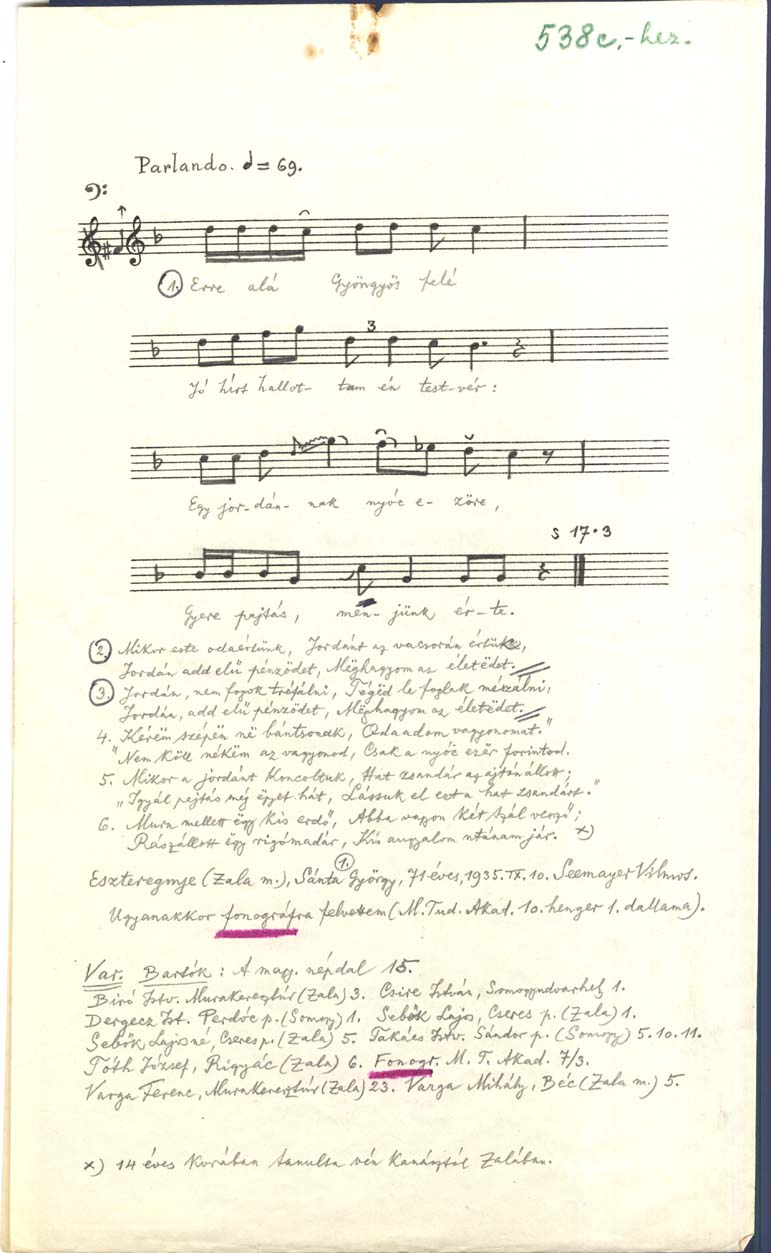 538c.-hez.
Parlando. = 69.
1. Erre alá Gyöngyös felé
3
Jó hírt hallot- tam én test-vér:
Egy jor-dán- nak nyóc e- zöre,
S 17.3
Gyere pajtás, men- jünk ér-te.
2. Mikor este odaértünk, Jordánt az vacsorán értük,
Jordán add elű pénzödet, Mëghagyom az életëdet.
3. Jordán, nem fogok tréfálni, Tégëd le foglak mészálni,
Jordán, add elű pénzödet, Mëghagyom az életëdet.
4. Kérëm szépën në bántsonak, Odaadom vagyonomat."
"Nem köll nékëm az vagyonod, Csak a nyóc ezër forintod.
5. Mikor a jordánt koncoltuk, Hat zsandár az ajtón állott;
"Igyál pejtás még ëgyet hát, Lássuk el ezt a hat zsandárt."
6. Mura mellett ëgy kis erdő, Abba vagyon két szál vesző;
Rászállott ëgy rigómadár, Kis angyalom utánam jár. x)
1.
Eszteregnye (Zala m.), Sánta György, 71 éves, 1935. IX. 10. Seemayer Vilmos.
Ugyanakkor fonográfra felvettem (M. Tud. Akad. 10. henger 1. dallama).
Var. Bartók: A magy. népdal 15.
Biró Istv. Murakeresztúr (Zala) 3. Csire István, Somogyudvarhely 1.
Dergecz Ist. Perdóc p. (Somogy) 1. Sebők Lajos, Cseres p. (Zala) 1.
Sebők Lajosné, Cseres p. (Zala) 5. Takács Istv. Sándor p. (Somogy) 5. 10. 11.
Tóth József, Rigyác (Zala) 6. Fonogr. M. T. Akad. 7/3.
Varga Ferenc, Murakeresztúr (Zala) 23. Varga Mihály, Béc (Zala m.) 5.
x) 14 éves korában tanulta vén kanásztól Zalában.